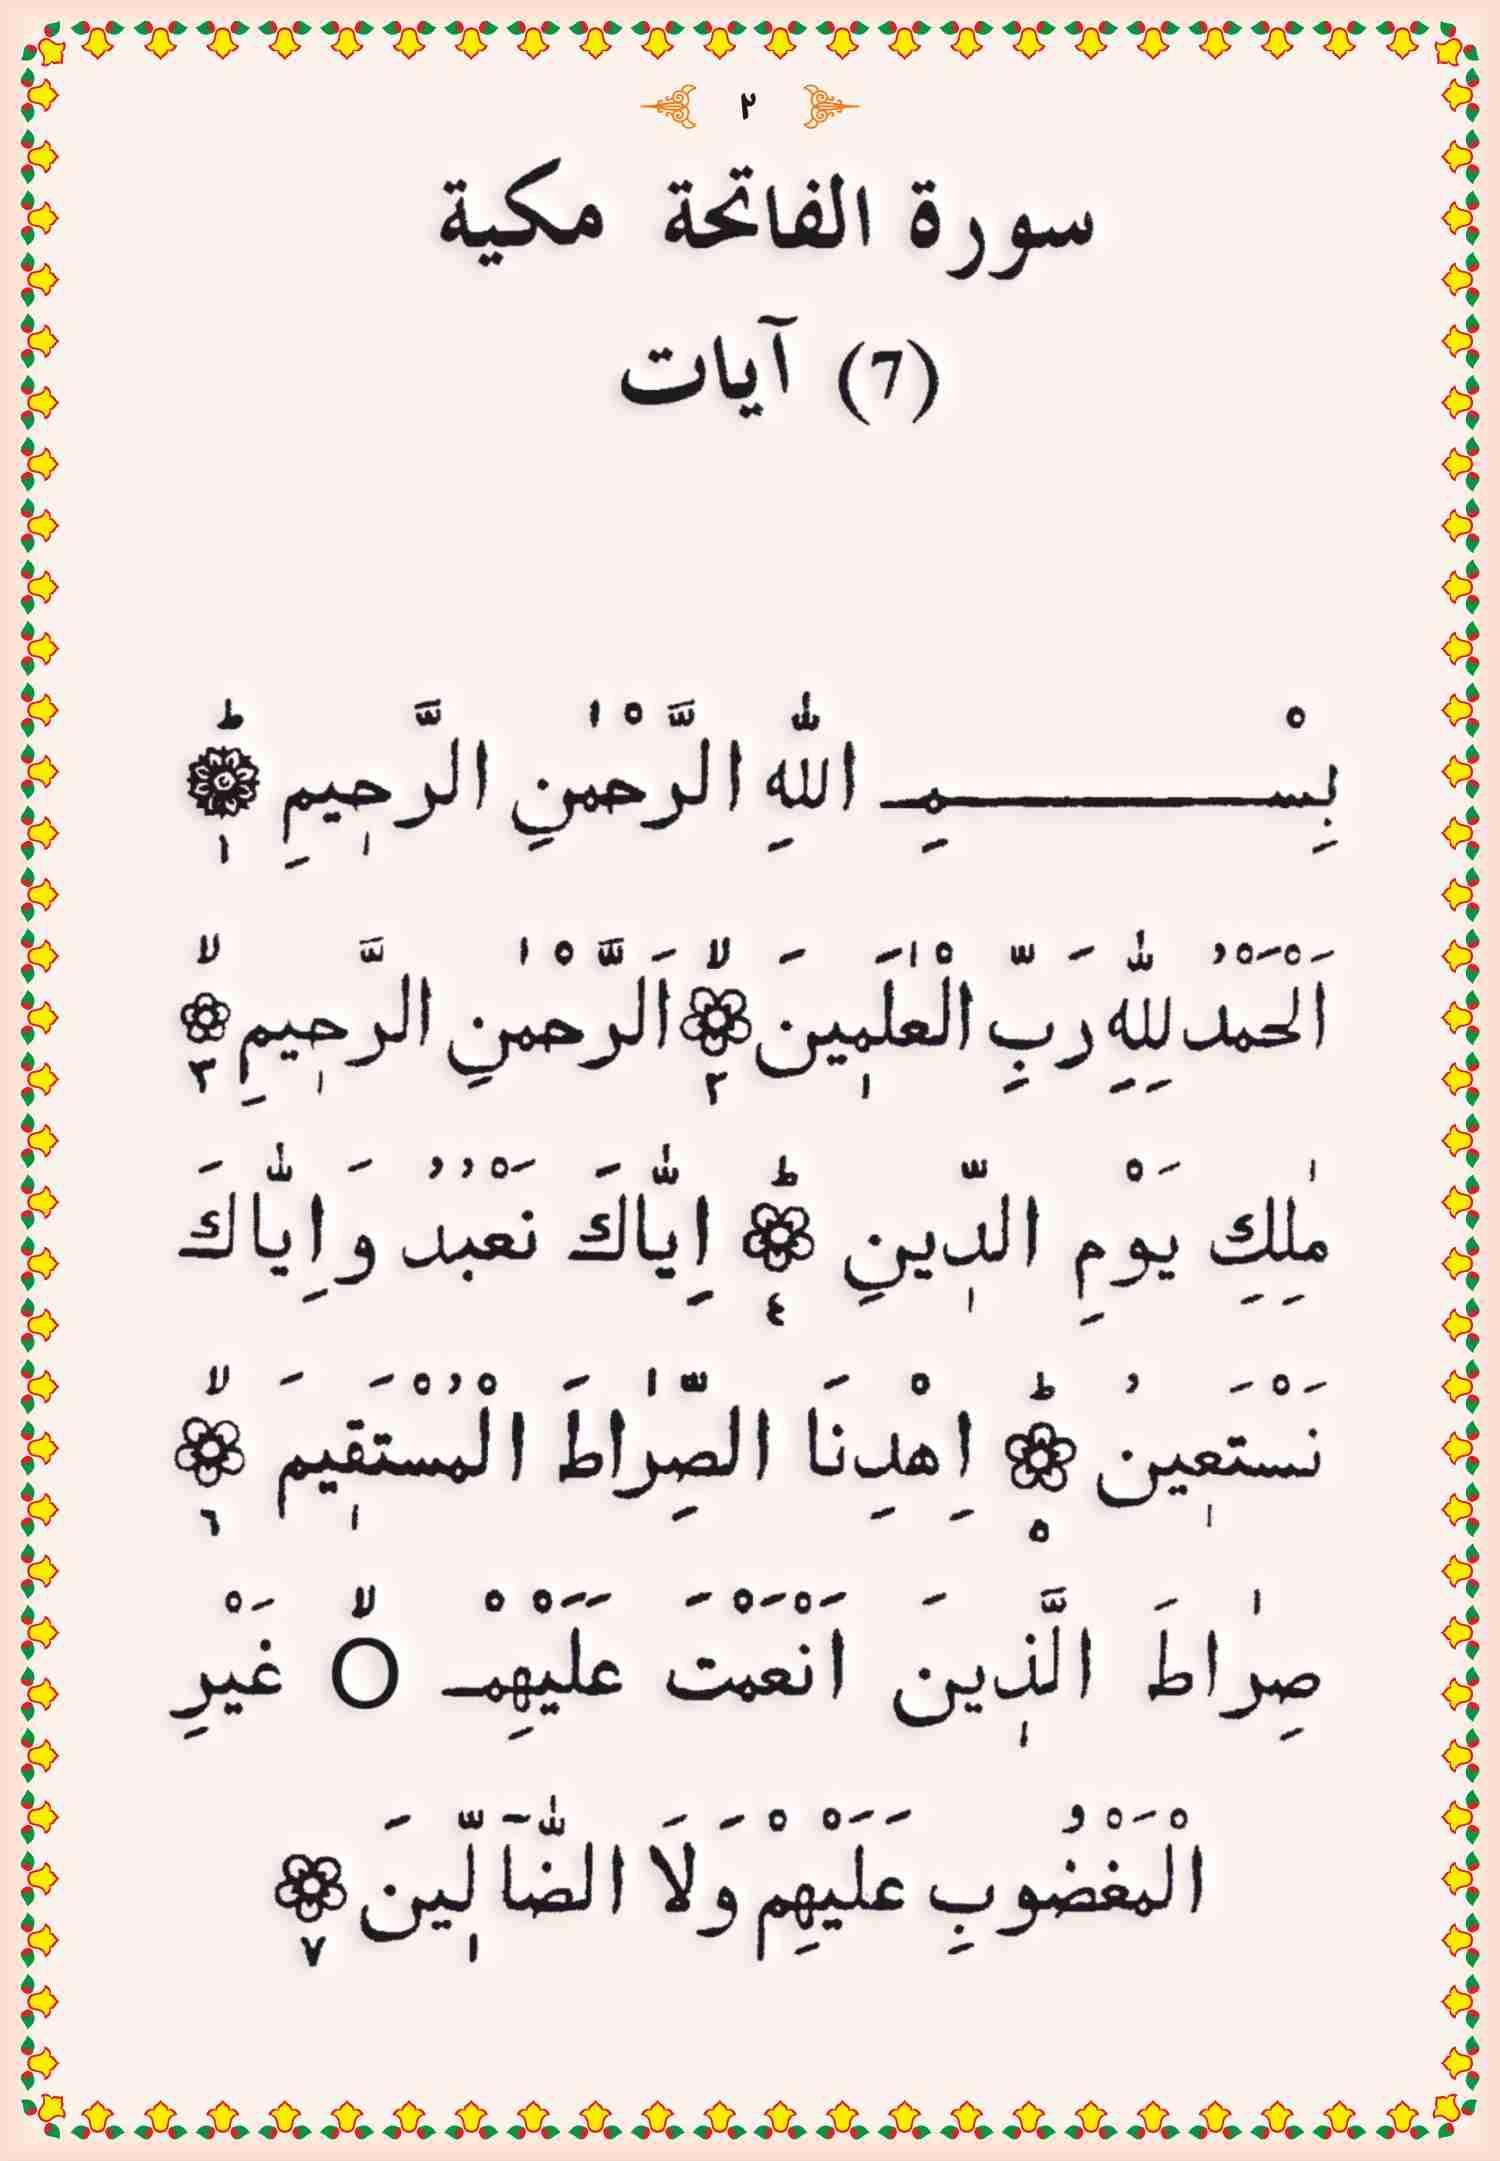 ٢
سورة الفاتحة مكية
(7) آيات
بِسْمِ اللّٰهِ الرَّحْمٰنِ الرَّحِيْمِ ۱ ط
اَلْحَمْدُ لِلّٰهِ رَبِّ الْعٰلَمِيْنَ ۲ لا اَلرَّحْمٰنِ الرَّحِيْمِ ۳ لا
مٰلِكِ يَوْمِ الدِّيْنِ ٤ ط اِيَّاكَ نَعْبُدُ وَ اِيَّاكَ
نَسْتَعِيْنُ ٥ ط اِهْدِنَا الصِّرٰاطَ الْمُسْتَقِيْمَ ٦ لا
صِرٰاطَ الَّذِيْنَ اَنْعَمْتَ عَلَيْهِمْ O لا غَيْرِ
الْمَغْضُوبِ عَلَيْهِمْ وَلَا الضَّآلِّيْنَ ٧